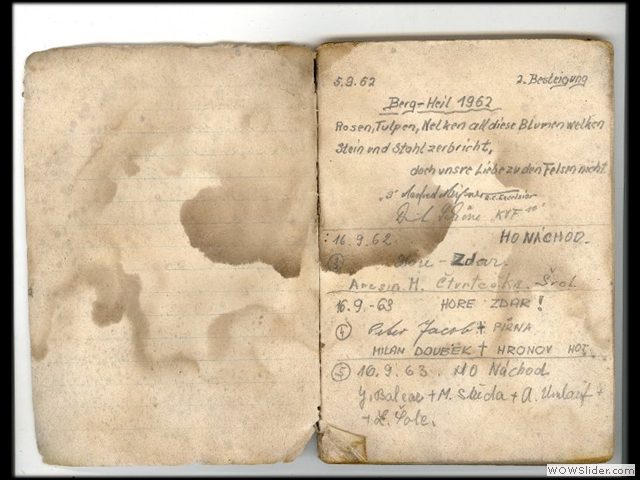 5.9.62 2. Besteigung
Berg-Heil 1962
Rosen, Tulpen, Nelken all diese Blumen welken
Stein und Stahl zerbricht,
doch unsre Liebe zu den Felsen nicht.
"S" Manfred
KVF
16.9.62 HO NÁCHOD.
③ Hore-Zdar.
M. Čtvrtečka.
16.9.-63 HORE ZDAR!
④ Peter Jacob + PIRNA
MILAN DOUBEK + HRONOV HOT.
⑤ 16.9.63. HO Náchod
+ M. Sleda + A. Umlauf +
+ Z. Šole.
WOWSlider.com